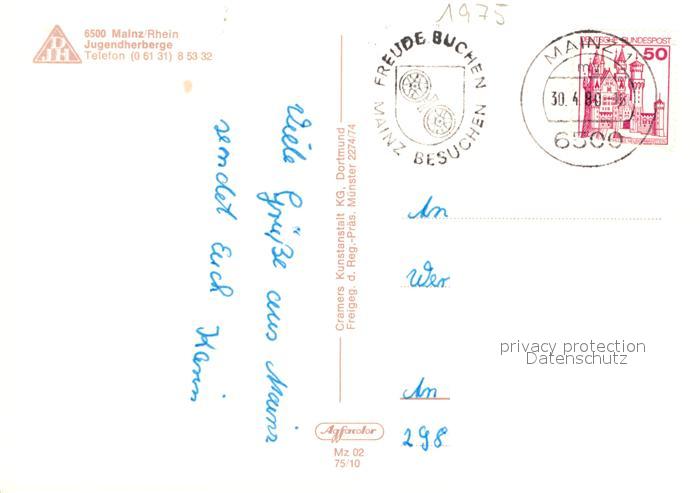 6500 Mainz/Rhein
Jugendherberge
Telefon (0 61 31) 8 53 32
DJH
1975
FREUDE BUCHEN
MAINZ BESUCHEN
MAINZ
30.4.80
6500
DEUTSCHE BUNDESPOST
50
Viele Grüße aus Mainz
sendet Euch Karin
Cramers Kunstanstalt KG, Dortmund
Freigeg. d. Reg.-Präs. Münster 2274/74
An
Wer
An
298
privacy protection
Datenschutz
Agfacolor
Mz 02
75/10